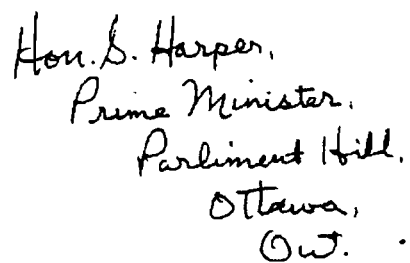 Hon. S. Harper,
Prime Minister,
Parliment Hill,
Ottawa,
Ont.